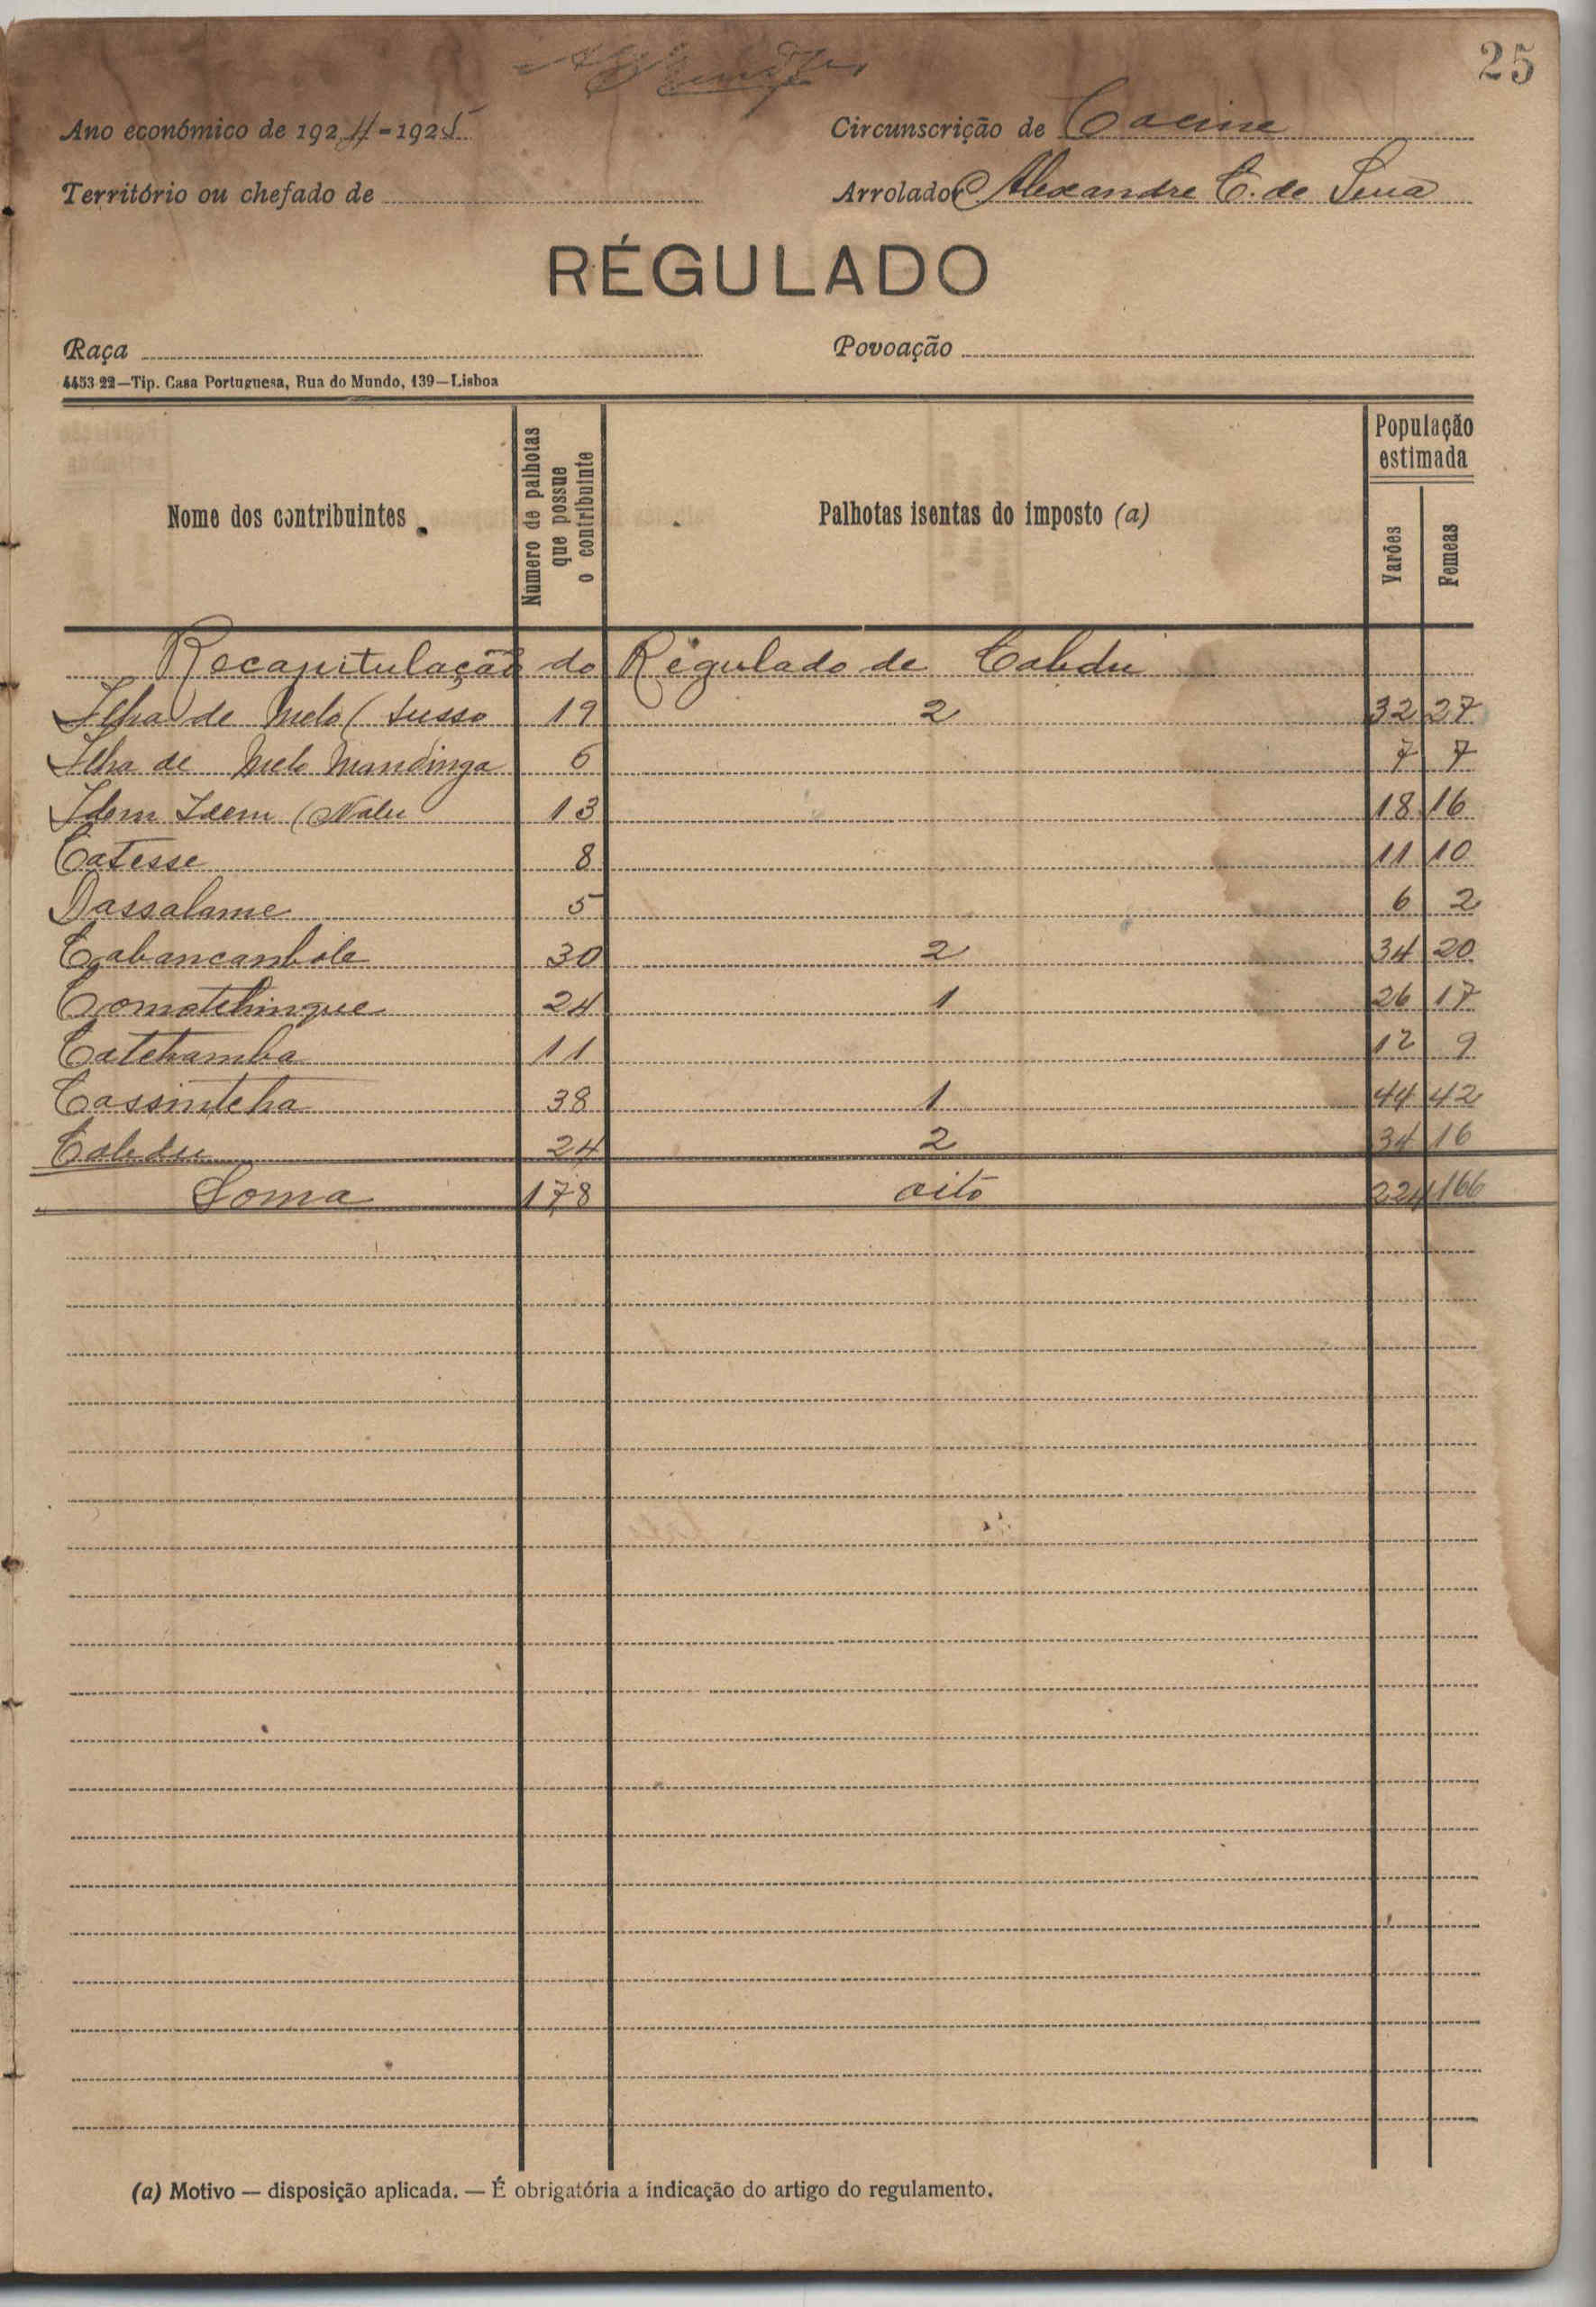 25
Ano económico de 1924-1925 Circunscrição de Cacine
Território ou chefado de Arrolador Alexandre C. de Sena
RÉGULADO
Raça Povoação
4453-22—Tip. Casa Portuguesa, Rua do Mundo, 139—Lisboa
Nome dos contribuintes Numero de palhotas que possue o contribuinte Palhotas isentas do imposto (a) População estimada Varões Femeas
Recapitulação do Régulado de Cabedu
Ilha de Melo (Susso 19 2 32 27
Ilha de Melo Mandinga 6 7 7
Idem Idem (Nalu 13 18 16
Catesse 8 11 10
Dassalame 5 6 2
Cabancanbole 30 2 34 20
Comotchingue 24 1 26 17
Catchamba 11 12 9
Cassintcha 38 1 44 42
Cabedu 24 2 34 16
Soma 178 oito 224 166
(a) Motivo — disposição aplicada. — É obrigatória a indicação do artigo do regulamento.